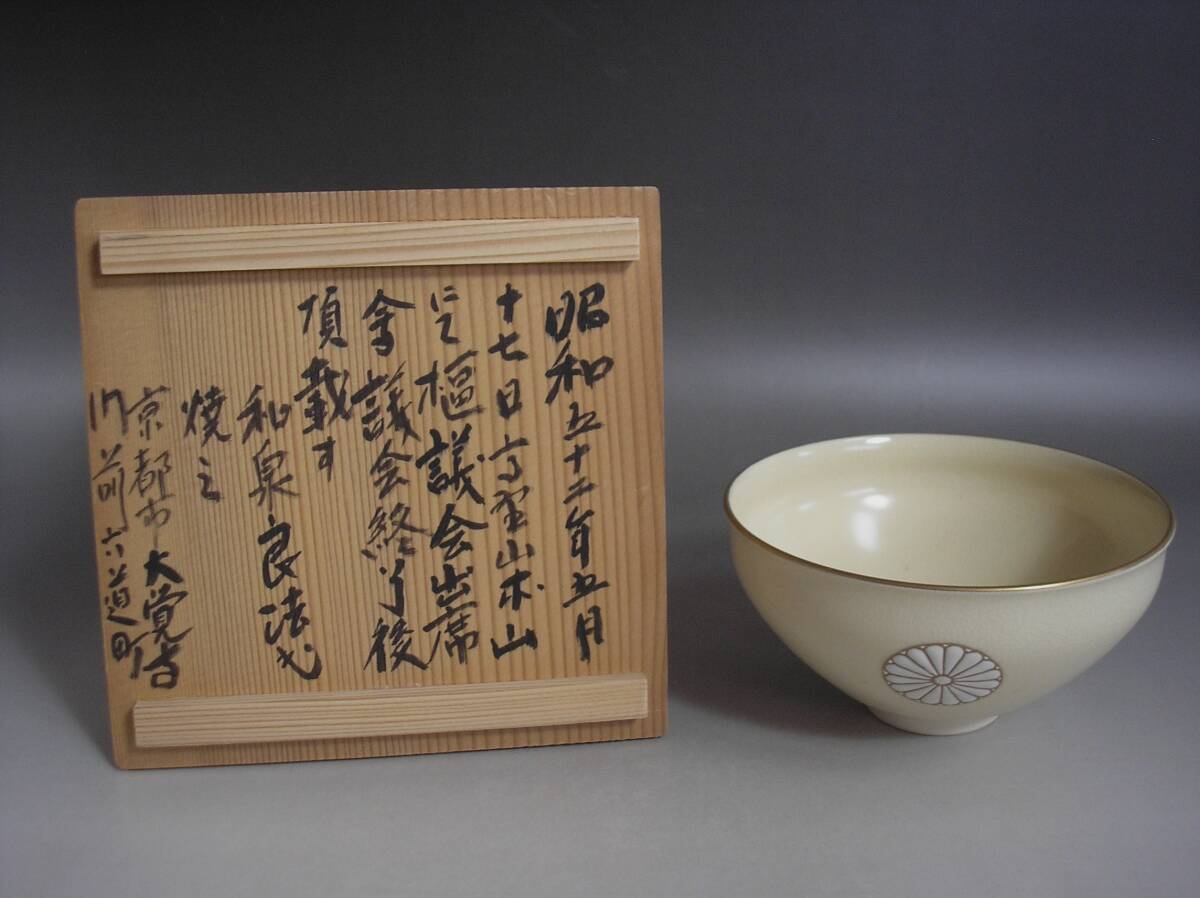 昭和五十二年五月
十七日高野山本山
にて樞議会出席
會議会終了後
頂載す
和泉良法
焼之
京都市大覚寺
門前六道町